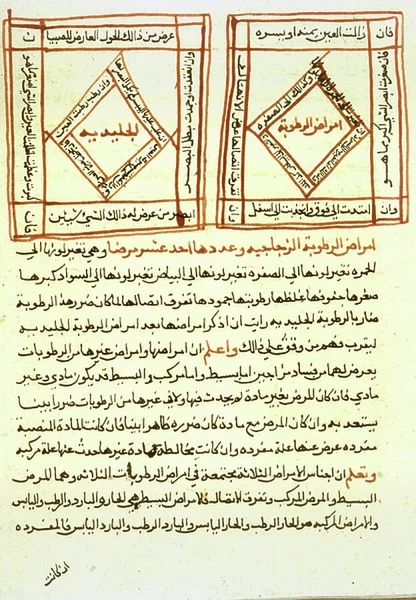 فان زالت العين يمنه او يسره
امراض الرطوبة
وان امتدت الى فوق او انجذبت الى اسفل
عرض من ذالك الحول العارض للصبيان
الجليديه
فان ابصر من عرض له ذالك الشي شيئين
امراض الرطوبة الزجاجيه وعددها احد عشر مرضا وهي تغير لونها الى
الحمره تغير لونها الى الصفره تغير لونها الى البياض تغير لونها الى السواد كبرها
صغرها جفوفها غلظها رطوبتها جمودها تفرق اتصالها لما كان ضررهذه الرطوبة
ضارا بالرطوبة الجليديه رايت ان اذكر امراضها بعد امراض الرطوبة الجليديه
ليقرب فهم من وقف على ذالك واعلم ان امراضها وامراض غيرها من الرطوبات
يعرض لها من فساد مزاجين اما بسيط واما مركب والبسيط قد يكون مادي وغير
مادي فان كان المرض بغير مادة لم يحدث فيها ولا في غيرها من الرطوبات ضررا بينا
يستعد به وان كان المرض مع مادة كان ضرره ظاهرا بينا فان كانت المادة المنصبة
مفرده عرض عنها علة مفرده وان كانت مخالطة لمادة غيرها حدث عنها علة مركبه
وتعلم ان اجناس الامراض الثلاثة مجتمعة في امراض الرطوبات الثلاثه وهما المرض
البسيط والمرض المركب وتفرق الاتصال فالامراض البسيط هي الحار والبارد والرطب واليابس
والامراض المركبه هو الحار الرطب والحار اليابس والبارد الرطب والبارد اليابس فالمفرده
ان كانت